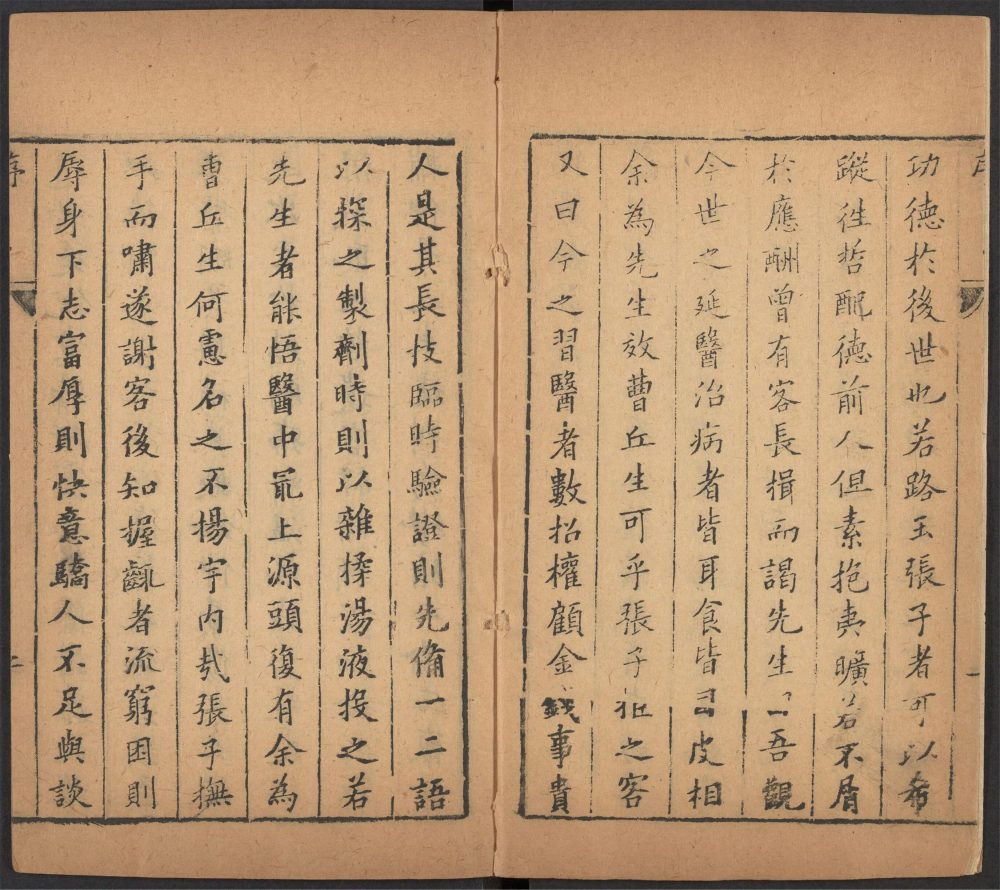 功德於後世也若路玉張子者可以希
蹤徃哲配德前人但素抱夷曠若不屑
於應酬曾有客長揖而謁先生曰吾觀
今世之延醫治病者皆耳食皆目皮相
余為先生效曹丘生可乎張子拒之客
又曰今之習醫者數招權顧金錢事貴
人是其長技臨時驗證則先俻一二語
以探之製劑時則以雜揉湯液投之若
先生者能悟醫中最上源頭復有余為
曹丘生何慮名之不揚宇内㢤張子撫
手而嘯遂謝客後知握齱者流窮困則
辱身下志富厚則快意驕人不足與談
序